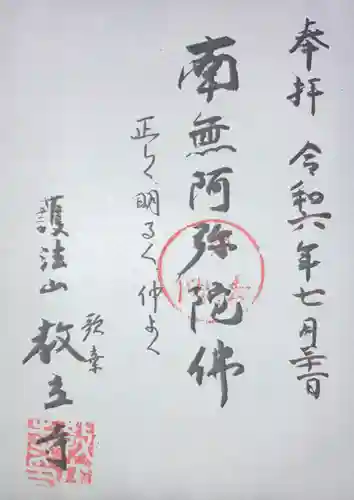 奉拝 令和六年七月三十一日
南無阿弥陀佛
正しく、明るく、仲よく
護法山 教立寺